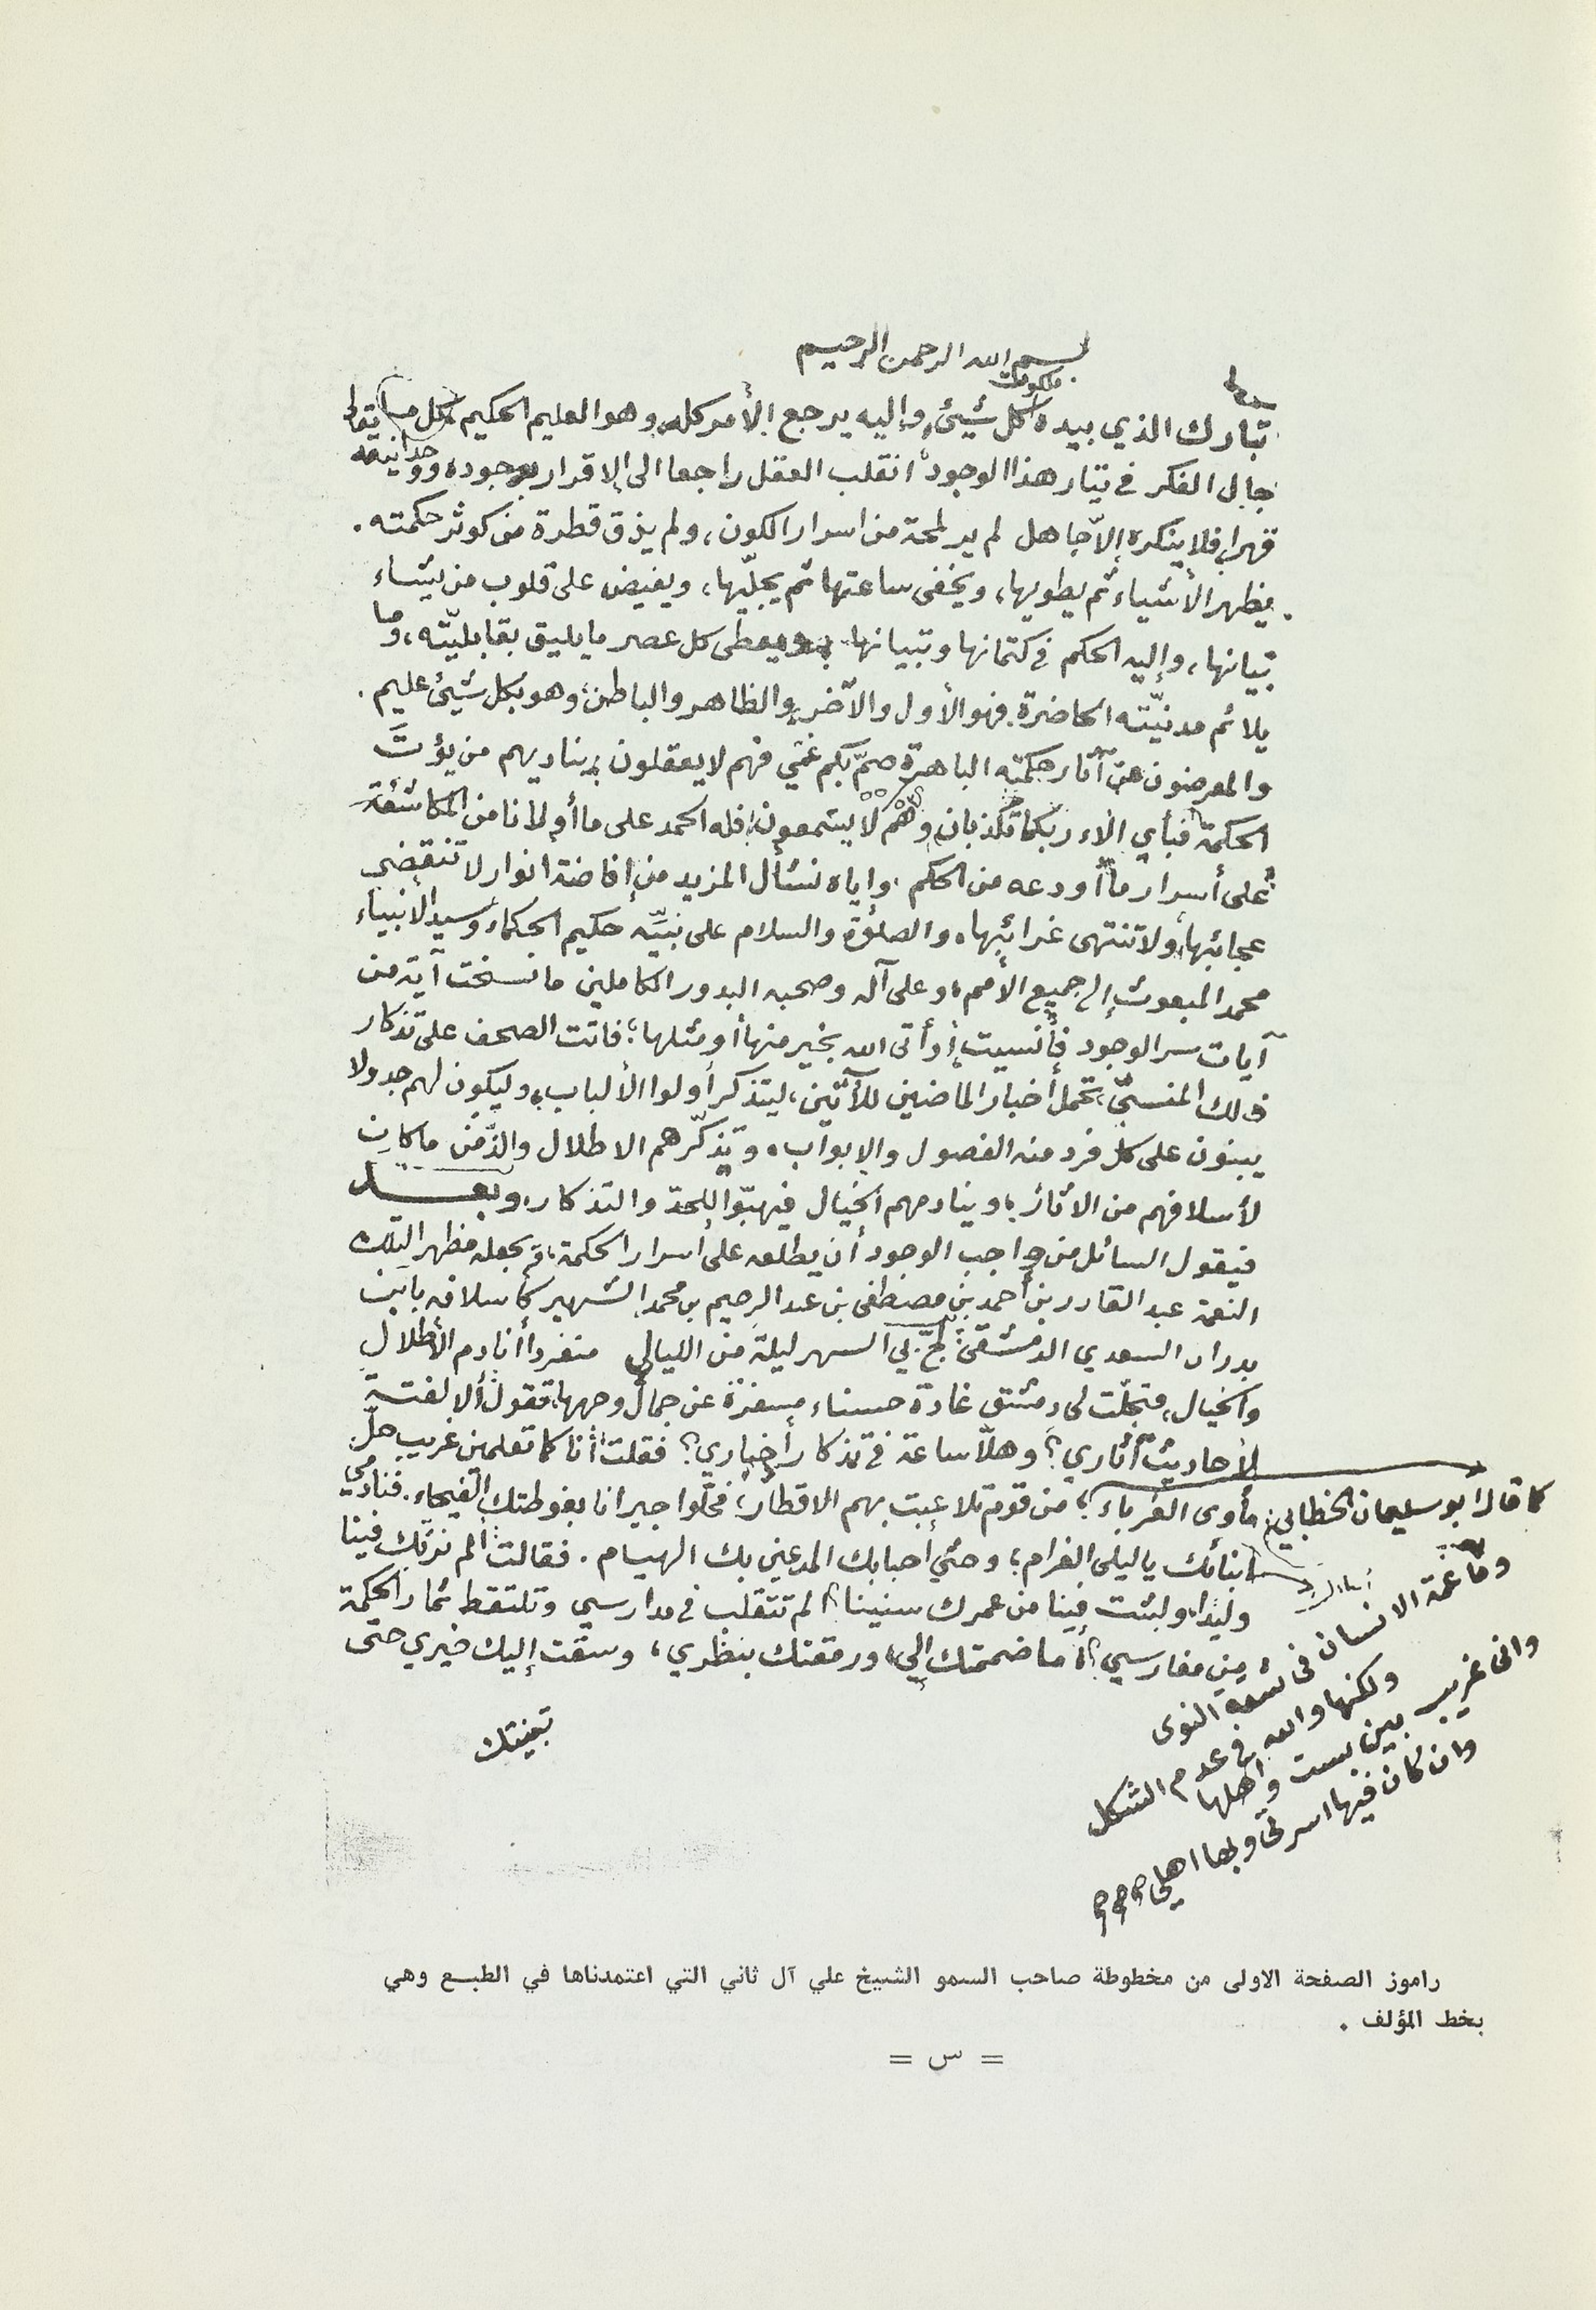 بسم الله الرحمن الرحيم
تبارك الذي بيده ملكوت كل شيئ، وإليه يرجع الأمر كله، وهو العليم الحكيم، كل
جال الفكر في تيار هذا الوجود انقلب العقل راجعا الى الاقرار بوجوده، ووحدانيته
قهرا، فلا ينكره إلاّ جاهل لم ير لمحة من اسرار الكون، ولم يذق قطرة من كوثر حكمته.
يظهر الأشياء ثم يطويها، ويخفى ساعتها ثم يجلّيها، ويفيض على قلوب من يشاء
تبيانها، وإليه الحكم في كتمانها وتبيانها ويعطى كل عصر ما يليق بقابليّته، وما
يلائم مدنيّته الحاضرة. فهو الأول والآخر، والظاهر والباطن، وهو بكل شيئ عليم.
والمعرضون عن آثار حكمته الباهرة صمّ بكم عمي فهم لا يعقلون يناديهم من يؤتَ
الحكمة فبأي الاء ربكما تكذبان وهم لا يسمعون، فله الحمد على ما أولانا من المكاشفة
على أسرار ما أودعه من الحكم، وإياه نسأل المزيد من إفاضة انوار لا تنقضي
عجائبها، ولا تنتهى غرائبها، والصلوة والسلام على نبيِّه حكيم الحكماء وسيد الأنبياء
محمد المبعوث إلى جميع الأمم، وعلى آله وصحبه البدور الكاملين ما نسخت آية من
آيات سر الوجود فأنسيت، أو أتى الله بخير منها أو مثلها، فاتت الصحف على تذكار
ذلك المنسيّ، تحمل أخبار الماضين للآتين، ليتذكر أولوا الألباب، وليكون لهم جدولا
يبنون على كل فرد منه الفصول والابواب، وتذكّرهم الاطلال والدِّمن ما كان
لأسلافهم من الاثار، وينادمهم الخيال فيهبّوا للجدّ والتذكار، وبعــد
فيقول السائل من واجب الوجود أن يطلعه على أسرار الحكمة، ثم يجعله مظهر التلك
النعمة عبد القادر بن أحمد بن مصطفى بن عبد الرحيم بن محمد الشهير كأسلافه بابن
بدران السعدي الدمشقى: لجّ بي السهر ليلة من الليالي منفردا أنادم الأطلال
والخيال، فتجلّت لى دمشق غادة حسناء مسفرة عن جمال وجهها، تقول ألا لفتة
لأحاديث آثاري؟ وهلاّ ساعة في تذكار أخباري؟ فقلت أنا كما تعلمين غريب حلّ
مأوى الغرباء، من قوم تلاعبت بهم الاقطار، فحلّوا جيرانا بغوطتك الفيحاء. فنادمي
أبنائك يا ليلى الغرام، وحيّي أحبابك المدعين بك الهيام. فقالت ألم نربّك فينا
وليدا، ولبثت فينا من عمرك سنينا، ألم تتقلب في مدارسي وتلتقط ثمار الحكمة
من مغارسي؟ أما ضممتك إليّ، ورمقتك بنظري، وسقت إليك خيري حتى
تبغيتك
كما قال ابو سليمان الخطابي
وما غمة الانسان في شقة النوى
ولكنها والله في عدم الشكل
وانى غريب بين بست وأهلها
وان كان فيها اسرتى وبها اهلي
راموز الصفحة الاولى من مخطوطة صاحب السمو الشيخ علي آل ثاني التي اعتمدناها في الطبع وهي
بخط المؤلف .
= س =